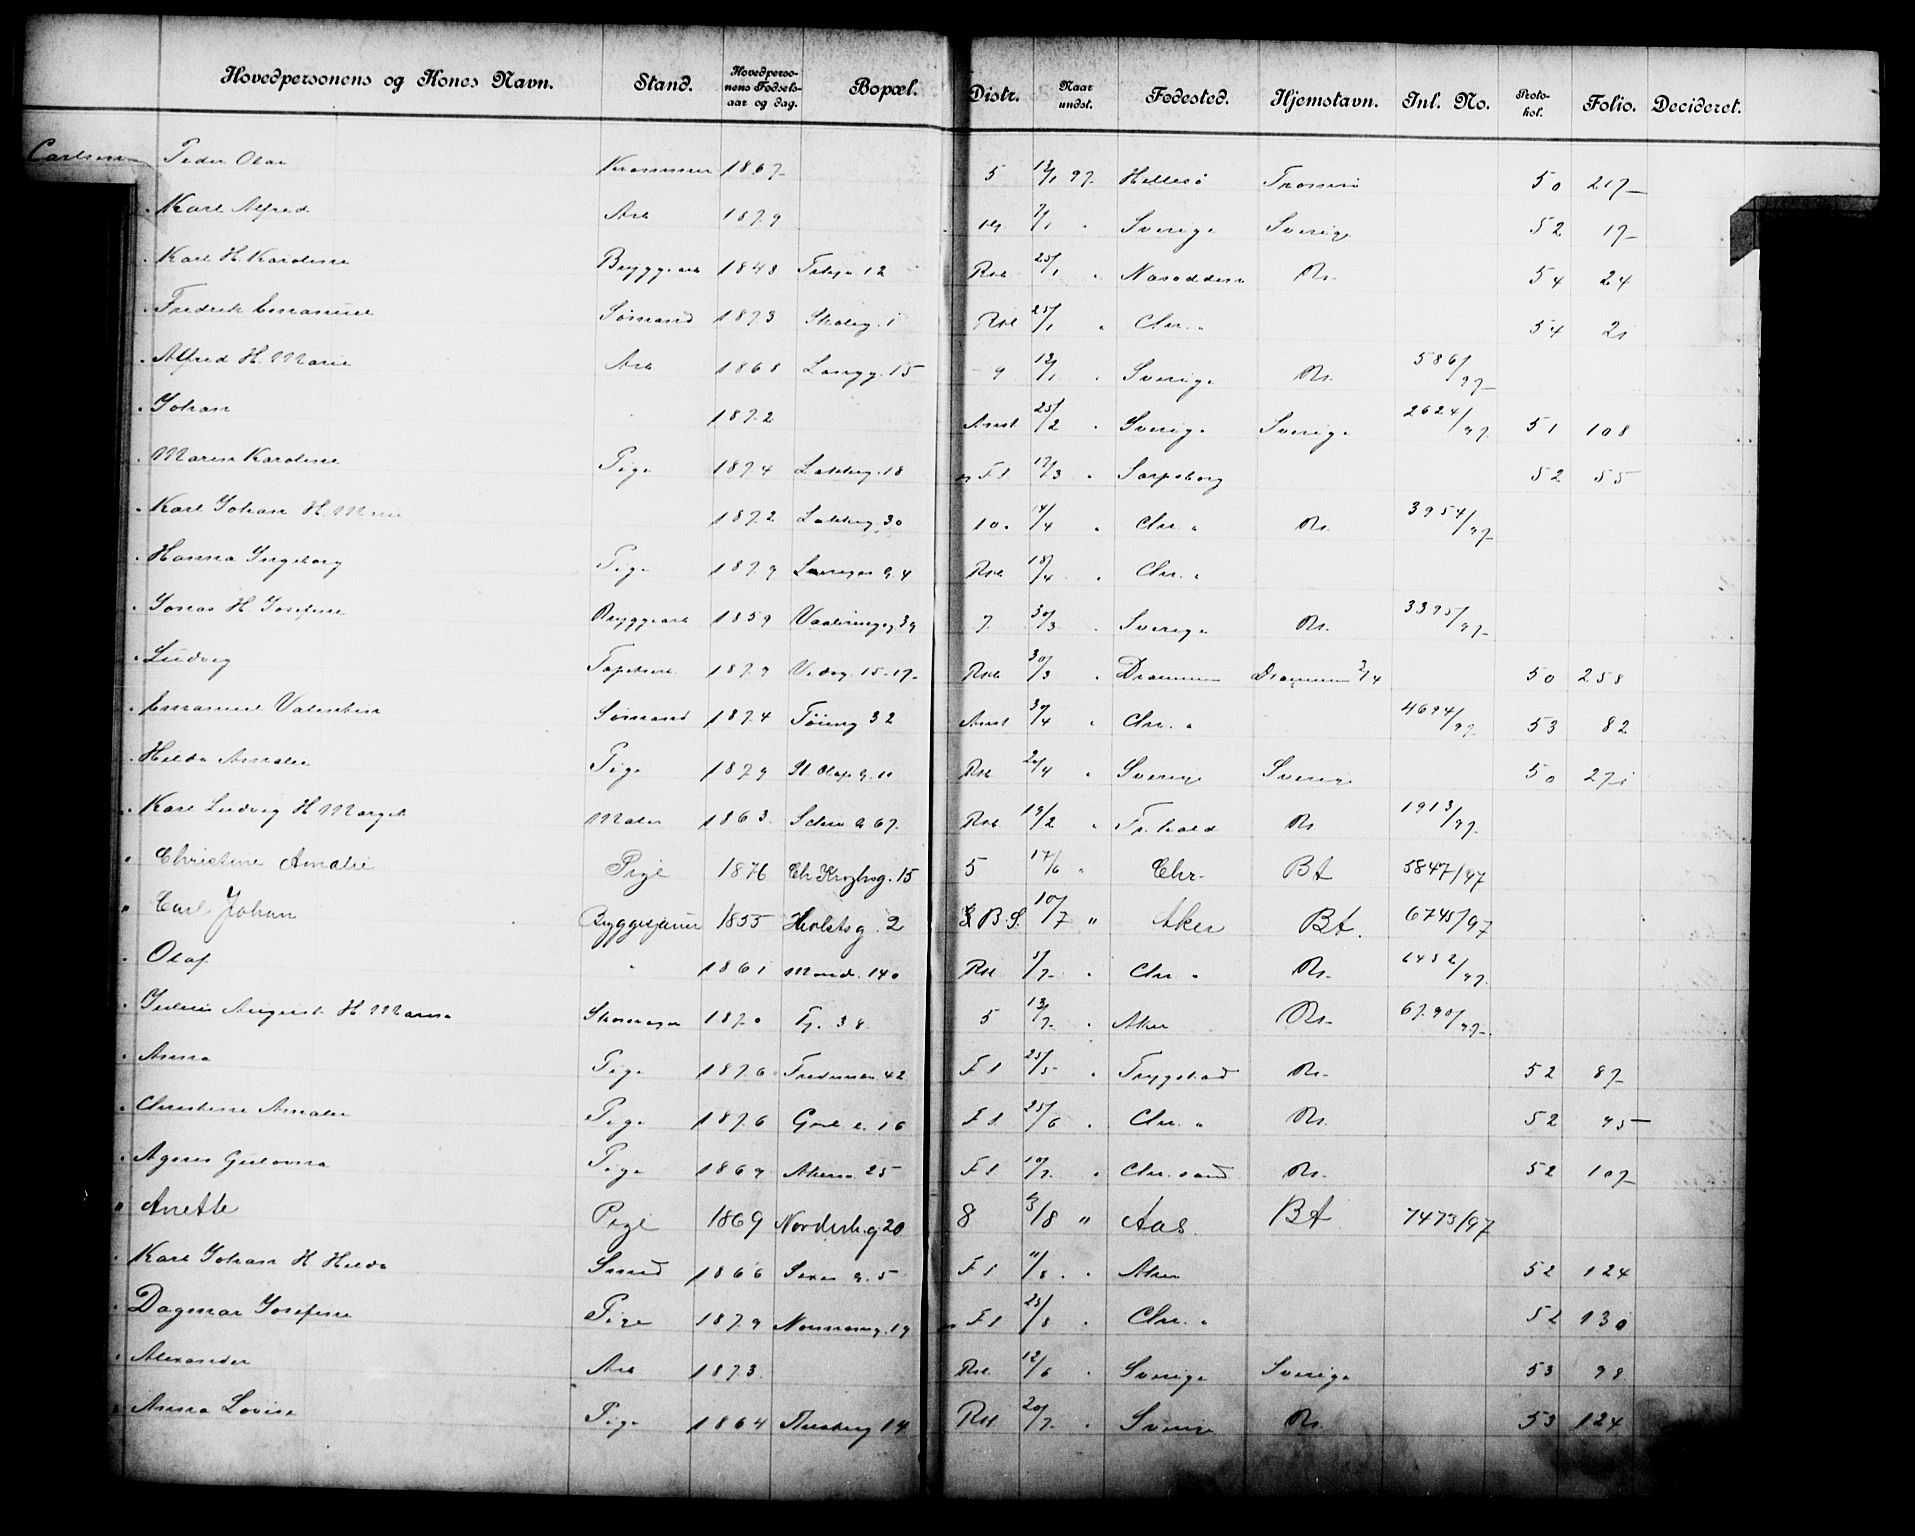 Hovedpersonens og Kones Navn. Stand. Hovedpersonens Fødselsaar og dag. Bopæl. Distr. Naar undst. Fødested. Hjemstavn. Inl. No. Protokol. Folio. Decideret.
Carlsen Peder Olai 1867 5 13/1 97 Hellesö Tromsö 50 217
" Karl Alfred Arb 1879 7/1 " Sverige Sverige 52 17
" Karl H. Karoline Byggearb 1848 12 Rst 25/1 " Næsodden Bt. 54 24
" Fredrik Emanuel Sømand 1873 Skoleg. 1 Rst 25/1 " Chr. " 54 21
" Alfred H. Marie Arb 1868 Langg. 15 9 13/1 " Sverige Bt. 586/97
" Johan 1872 Arrst 25/2 " Sverige Sverige 2624/97 51 108
" Maren Karoline Pige 1874 Lakkeg. 18 F 1 17/3 " Sarpsborg 52 55
" Karl Johan H. Marie 1872 Lakkeg. 30 10. 14/4 " Chr. " Bt. 3954/97
" Hanna Ingeborg Pige 1879 4 Rst 18/4 " Chr. "
" Jonas H. Josefine Byggearb 1859 Vaalerengg. 39 7 30/3 " Sverige Bt. 3395/97
" Ludvig 1879 15-17 Rst 30/3 " Drammen Drammen 2/4 50 258
" Emanuel Valentin Sømand 1874 Töieng 32 Arrst 30/4 " Chr. " 4694/97 53 82
" Hilda Amalie Pige 1879 St. Olafs g. 10 Rst 20/4 " Sverige Sverige 50 271
" Karl Ludvig H. Margit Maler 1863 67 Rst 19/2 " Fr.hald Bt. 1913/97
" Christine Amalie Pige 1876 Ch Kroghsg. 15 5 17/6 " Chr. Bt 5847/97
" Carl Johan Byggesjauer 1855 Holstsg. 2 B.S. 10/7 " Aker Bt. 6745/97
" Olaf " 1861 Maridv. 140 Rst 5/7 " Chr. " Bt. 6452/97
" Julius August H. Marna Skomager 1870 38 5 13/7 " Aker Bt. 6790/97
" Anna Pige 1876 Fredensb 42 F 1 25/5 " Trygstad Bt. 52 87
" Christine Amalie Pige 1876 16 F 1 25/6 " Chr. " Bt. 52 95
" Agnes Gulovna Pige 1869 Akersv. 25 F 1 10/7 " Chr.sand Bt. 52 107
" Anette Pige 1869 Norderh.g 20 8 3/8 " Aas Bt 7473/97
" Karl Johan H. Hilda Smed 1866 5 F 1 11/8 " Aker 52 124
" Dagmar Josefine Pige 1879 Normansg. 19 F 1 23/8 " Chr. " 52 130
" Alexander Arb 1873 Rst 12/6 " Sverige Sverige 53 98
" Anna Lovise Pige 1864 14 Rst 20/7 " Sverige Bt. 53 124